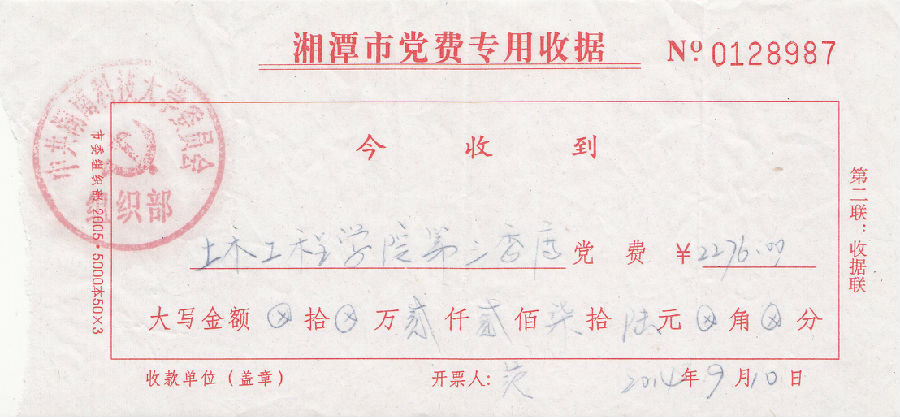 湘潭市党费专用收据 Nº 0128987
中共湖南科技大学委员会
组织部
今收到
土木工程学院第二 党费 ¥2276.00
大写金额 ⊗ 拾 ⊗ 万 贰 仟 贰 佰 柒 拾 陆 元 ⊗ 角 ⊗ 分
收款单位（盖章） 开票人: 2014年9月10日
市委组织部·2005·5000本50×3
第二联：收据联